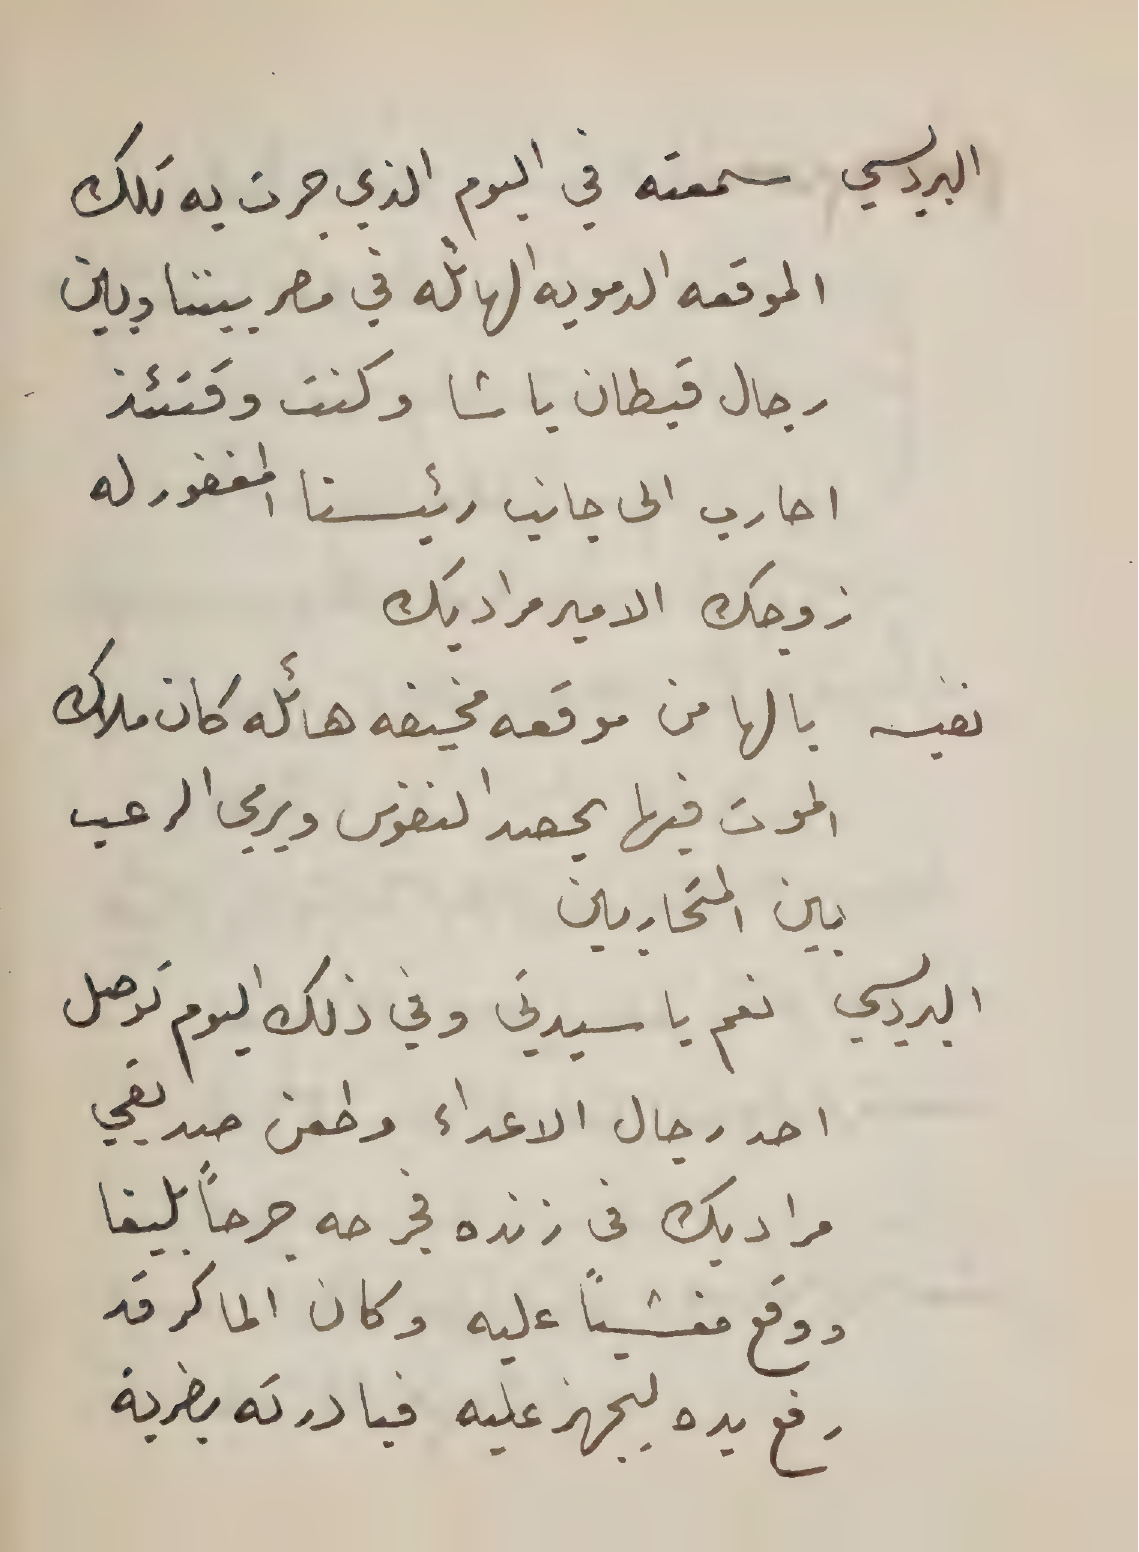 البرديسي سمعته في اليوم الذي جرت به تلك
الموقعه الدمويه الهائله في مصر بيننا وبين
رجال قبطان باشا وكنت وقتئذ
احارب الى جانب رئيسنا المغفور له
زوجك الامير مراد بك
نفيسه يا لها من موقعه مخيفه هائله كان ملاك
الموت فيها يحصد النفوس ويرمي الرعب
بين المتحاربين
البرديسي نعم يا سيدتي وفي ذلك اليوم توصل
احد رجال الاعداء وطعن صديقي
مراد بك في زنده فجرحه جرحاً بليغا
ووقع مغشياً عليه وكان الماكر قد
رفع يده ليجهز عليه فبادرته بضربة